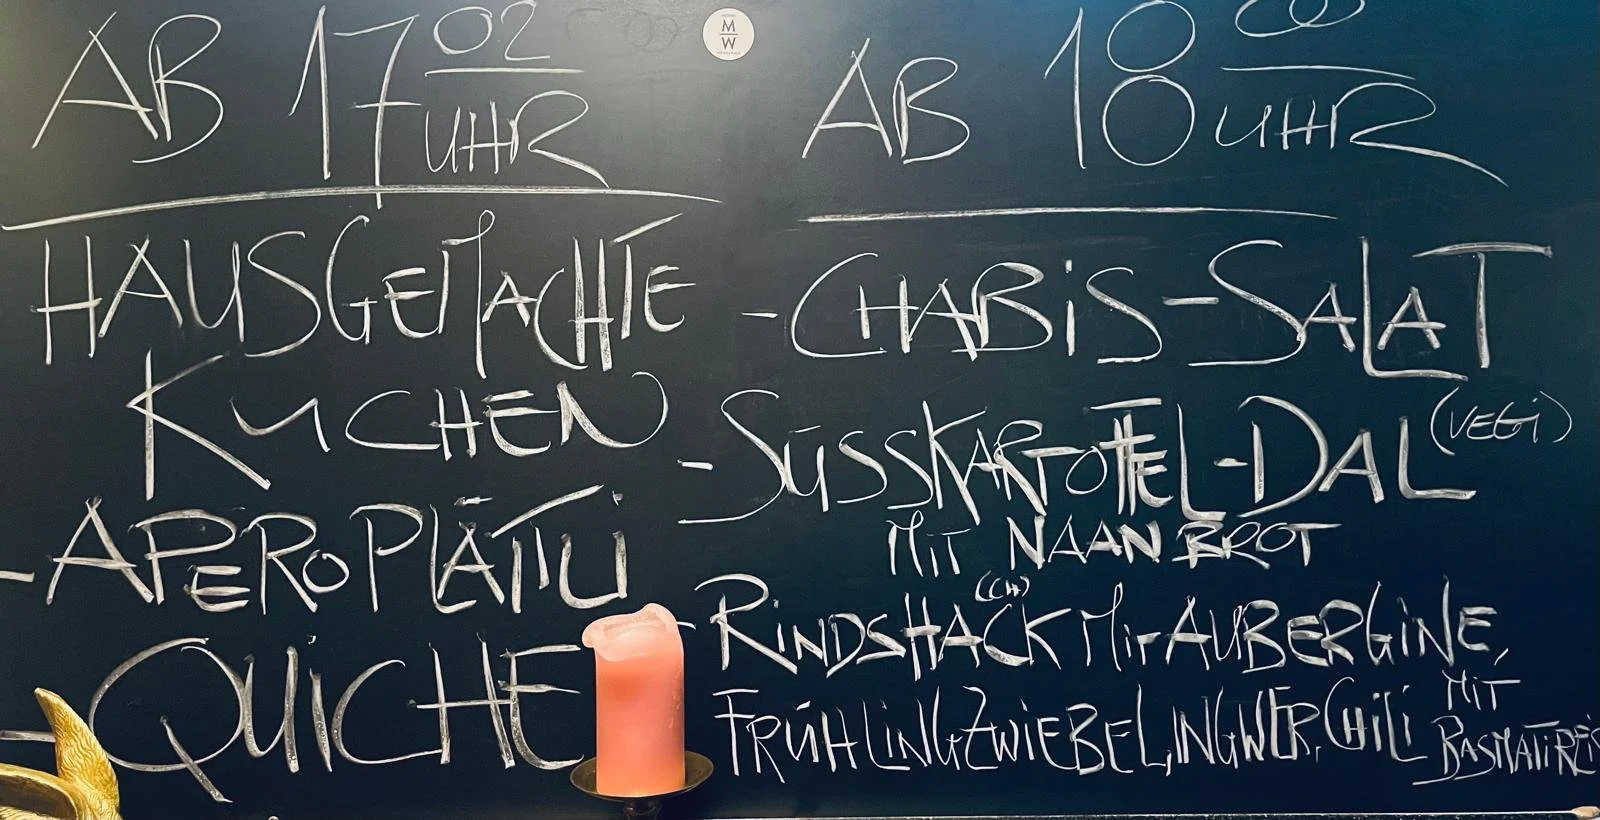 AB 17 02 UHR
HAUSGEMACHTE
KUCHEN
- APEROPLÄTTLI
- QUICHE
M
W
AB 18 00 UHR
- CHABIS-SALAT
- SÜSSKARTOFFEL-DAL (VEGI)
MIT NAAN BROT
- RINDSHACK (CH) MIT AUBERGINE,
FRÜHLINGZWIEBEL, INGWER, CHILI MIT
BASMATIREIS